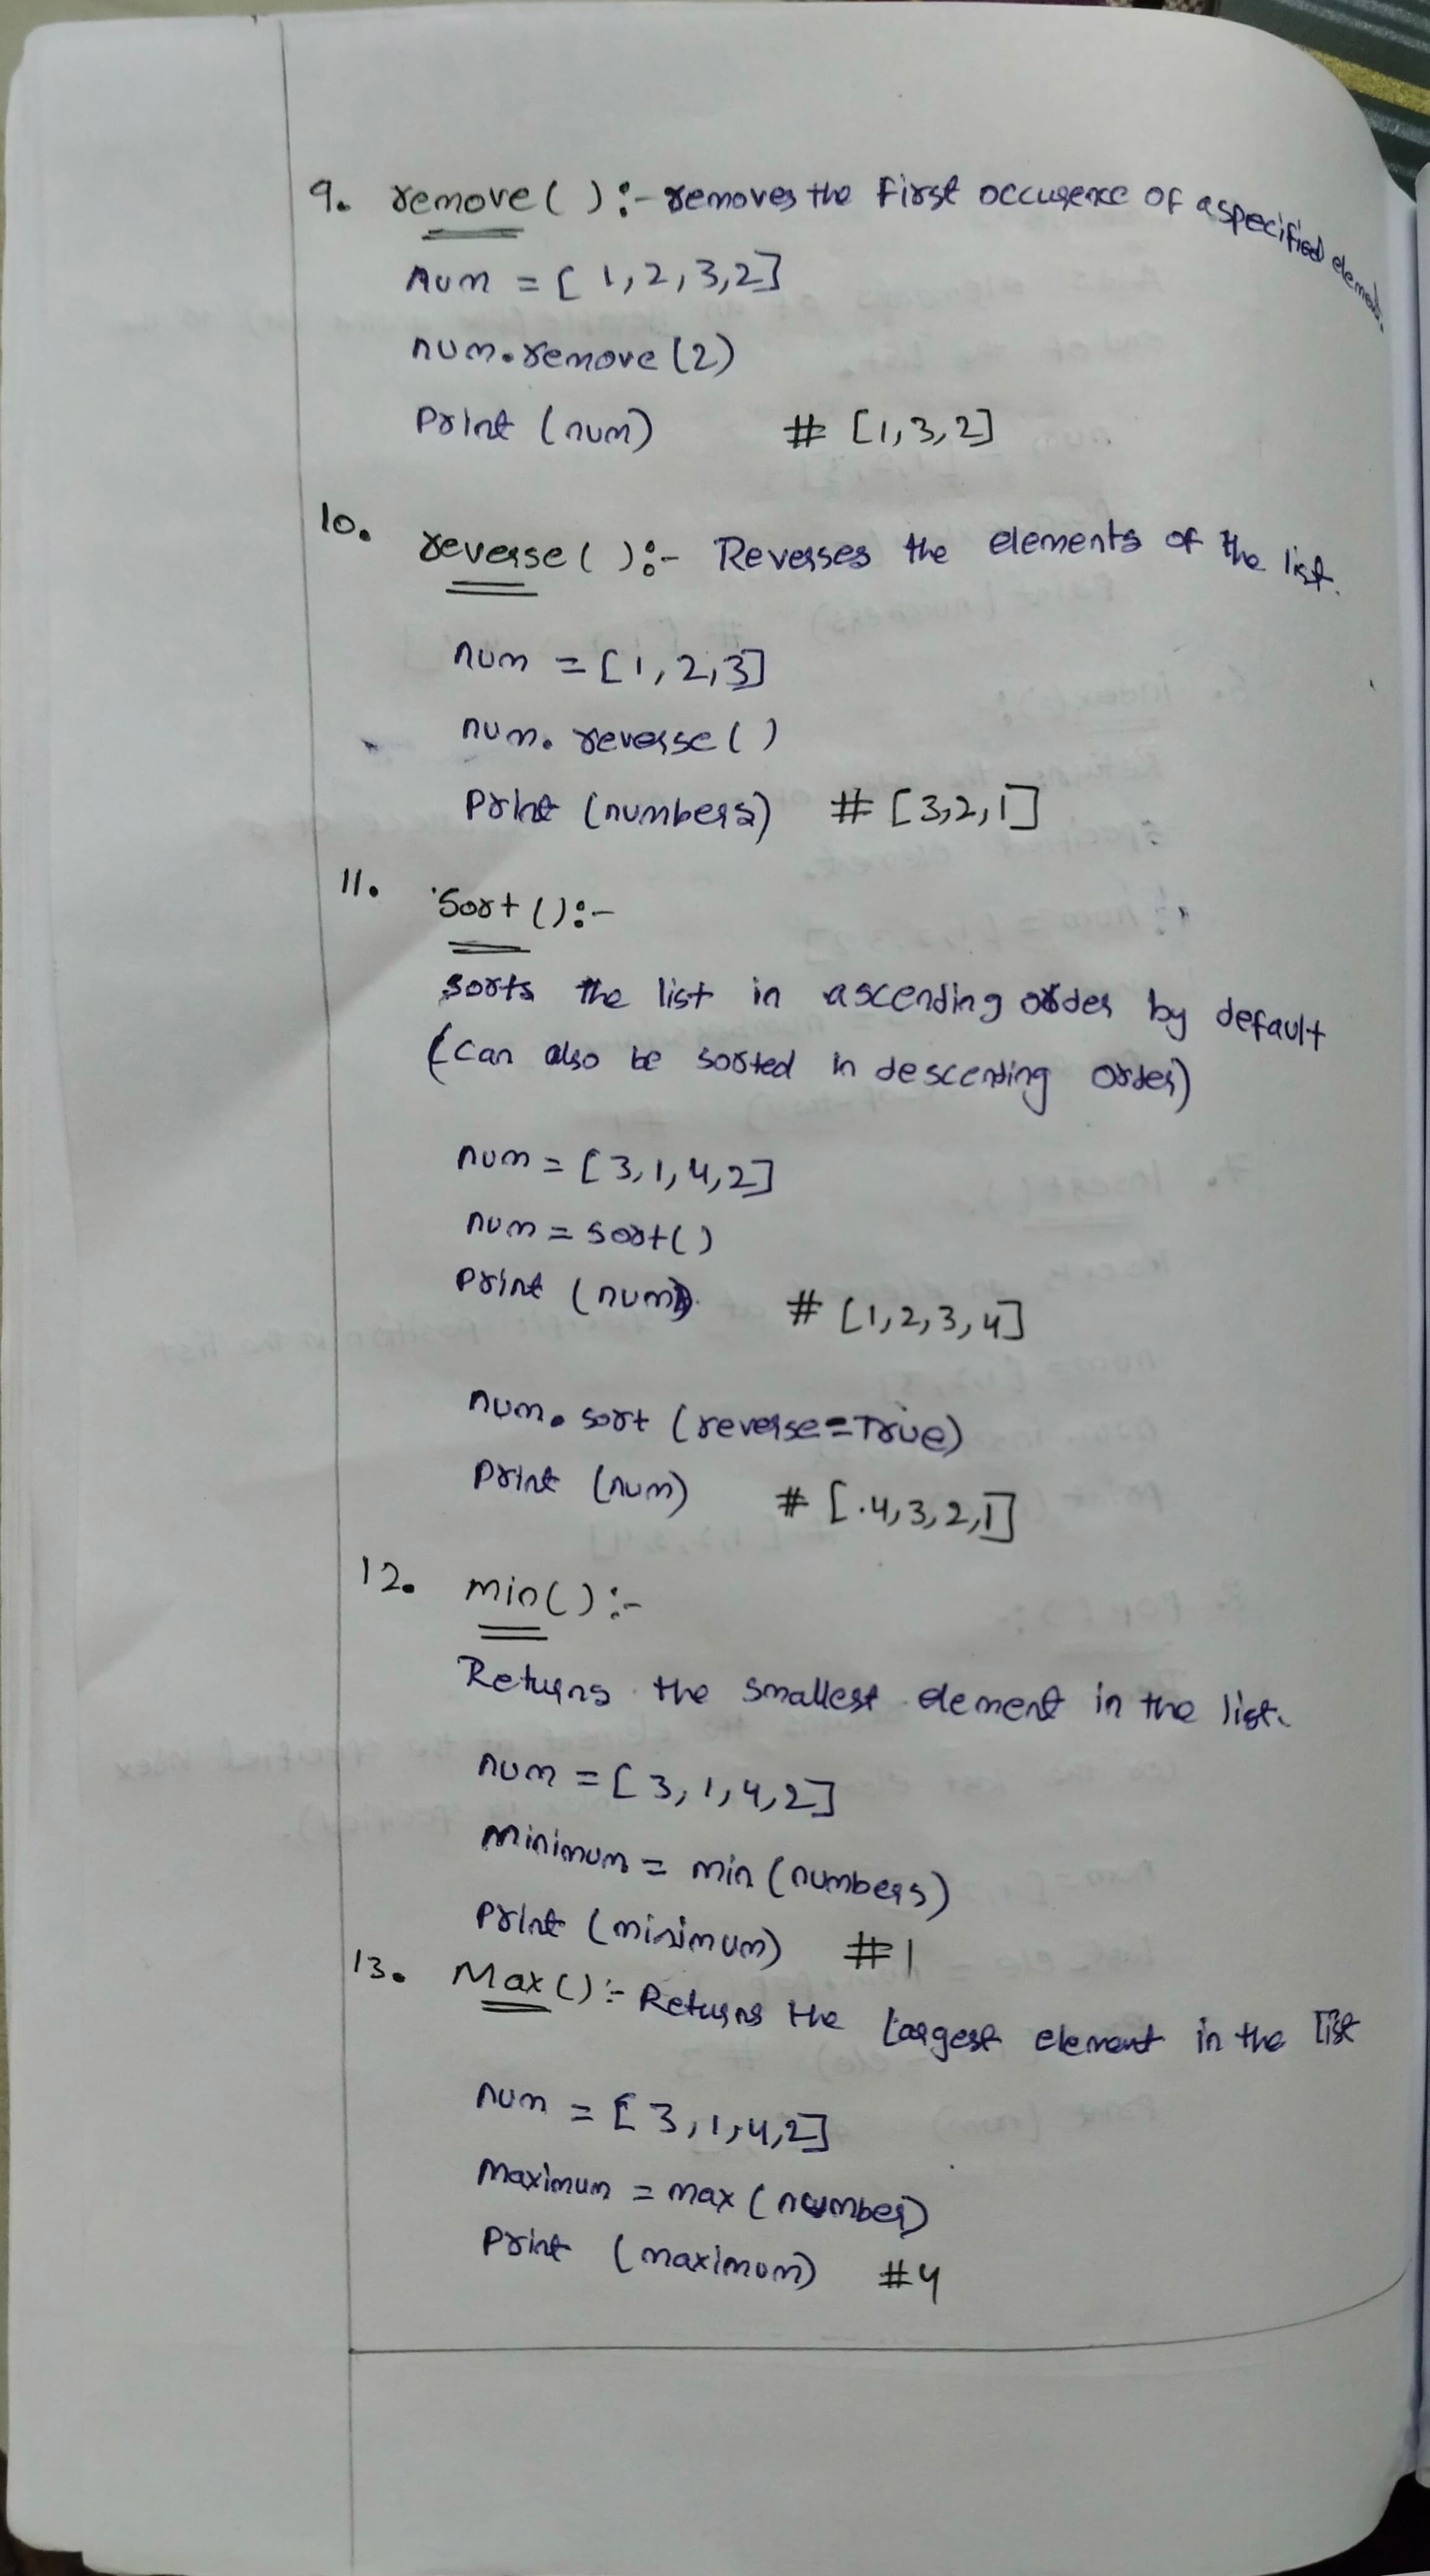 9. remove( ):- removes the first occurence of a specified element.
Num = [1,2,3,2]
num.remove(2)
Print (num) # [1,3,2]
10. reverse( ):- Reverses the elements of the list.
num = [1,2,3]
num. reverse( )
Print (numbers) # [3,2,1]
11. Sort ():-
sorts the list in ascending order by default
(can also be sorted in descending order)
num = [3,1,4,2]
num = sort()
Print (num) # [1,2,3,4]
num. sort (reverse=True)
Print (num) # [.4,3,2,1]
12. min():-
Returns the smallest element in the list.
num = [3,1,4,2]
minimum = min (numbers)
Print (minimum) #1
13. Max():- Returns the largest element in the list
num = [3,1,4,2]
Maximum = max (number)
Print (maximum) #4